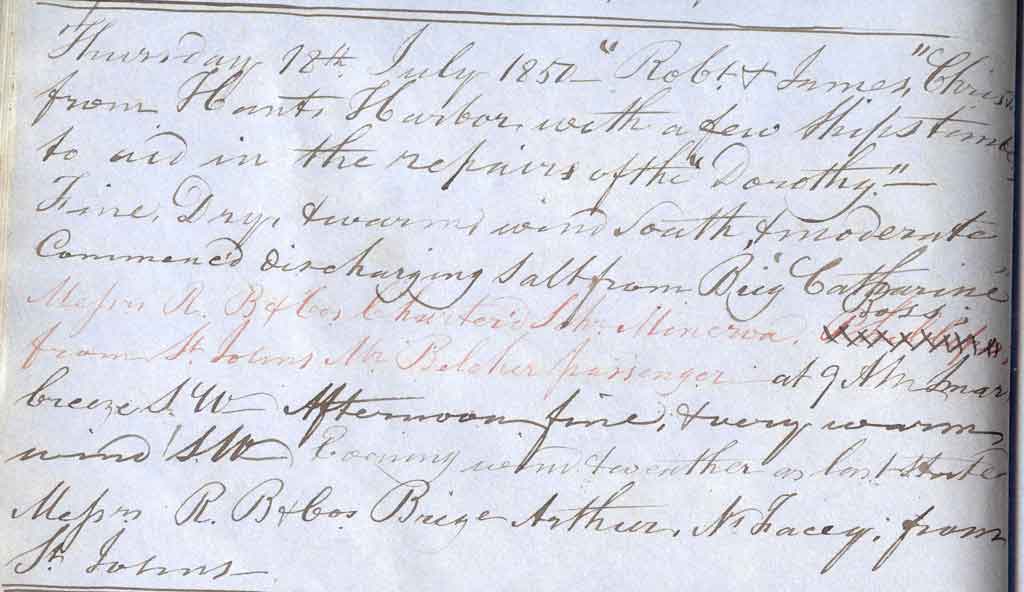 Thursday 18th July 1850 "Robt. & James,"
from Hants Harbor with a few Ships timber
to aid in the repairs of the "Dorothy." —
Fine, Dry, & warm, wind South, & moderate
Commenc'd discharging Salt from Brig "Catharine"
Goss.
Messrs R. B & Cos Charter'd Schr Minerva,
from St Johns Mr Belcher passenger at 9 AM smart
breeze S.W Afternoon fine, & very warm
wind S.W Evening wind & weather as last state
Messrs R. B & Cos Brige Arthur, N. Facey, from
St Johns